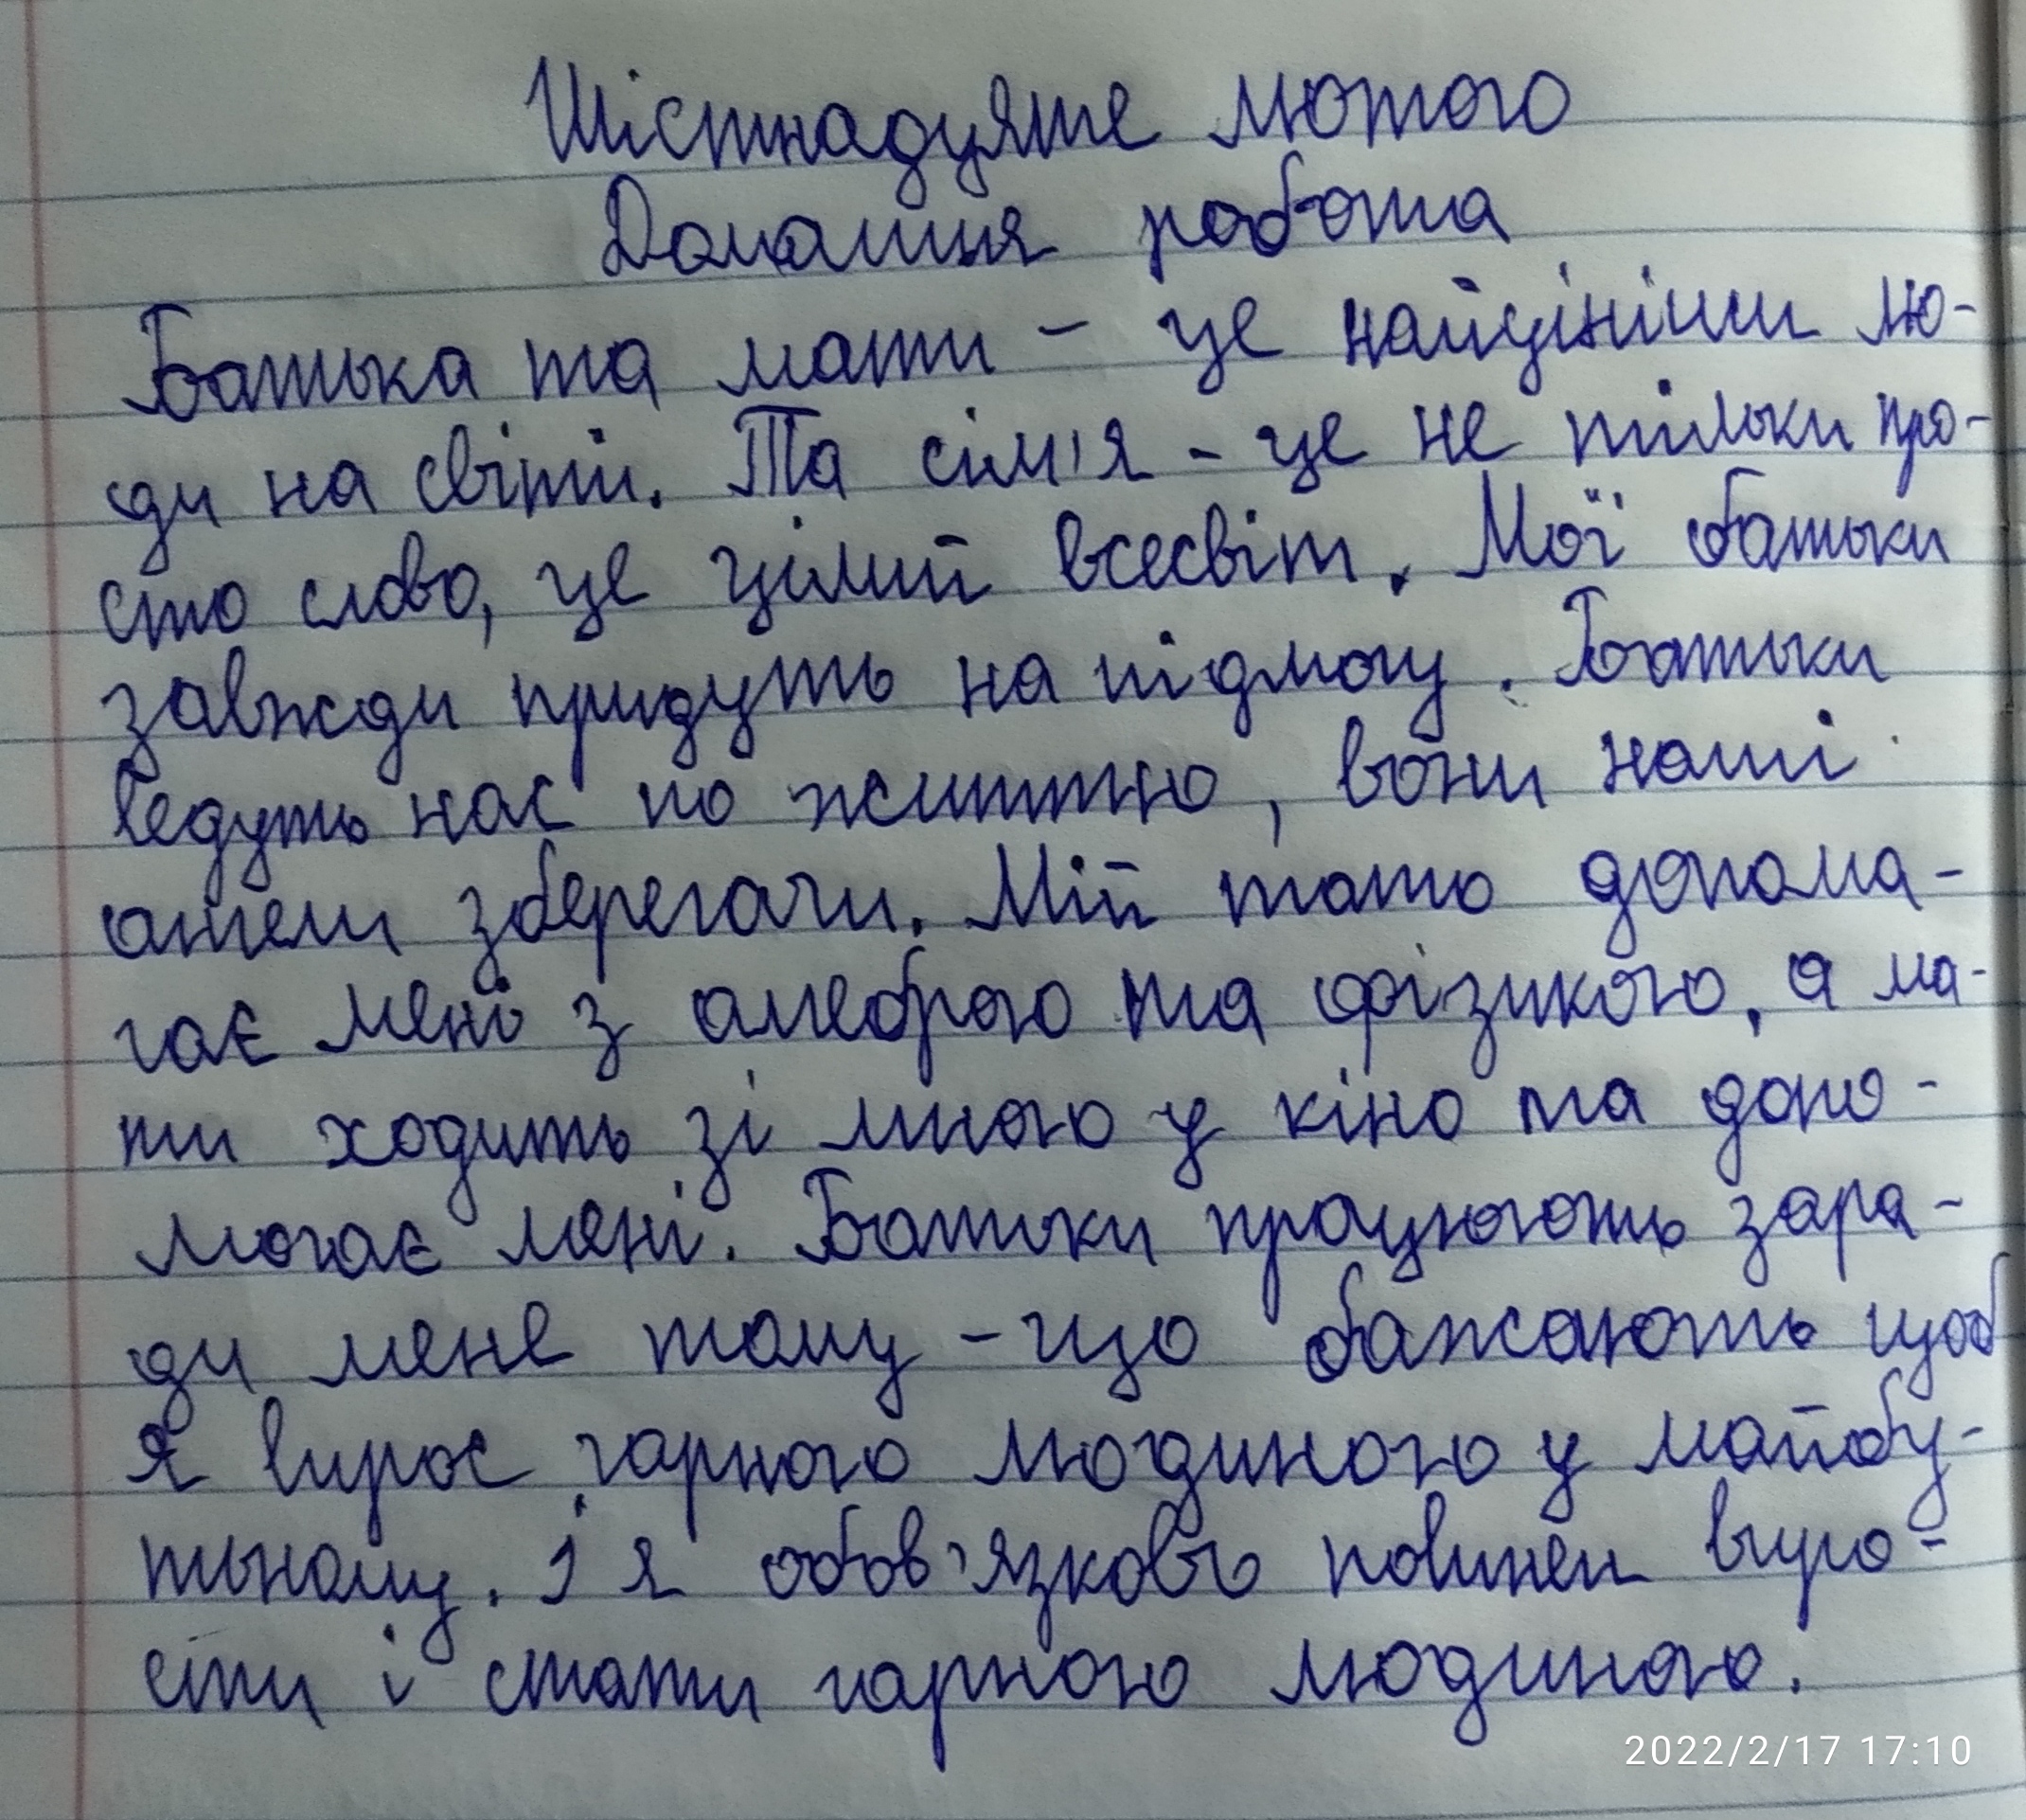 Шістнадцяте лютого
Домашня робота
Батька та мати - це найцініши лю-
ди на світі. Та сім'я - це не тільки про-
сто слово, це цілий всесвіт. Мої батьки
завжди придуть на підмогу. Батьки
ведуть нас по життю, вони наші
ангели зберегачи. Мій тато допома-
гає мені з алеброю та фізикою, а ма-
ти ходить зі мною у кіно та допо-
могає мені. Батьки працюють зара-
ди мене тому - що бажають щоб
Я вирос гарною людиною у майбу-
тьному. І я обов'язково повинен виро-
сти і стати гарною людиною.
2022/2/17 17:10